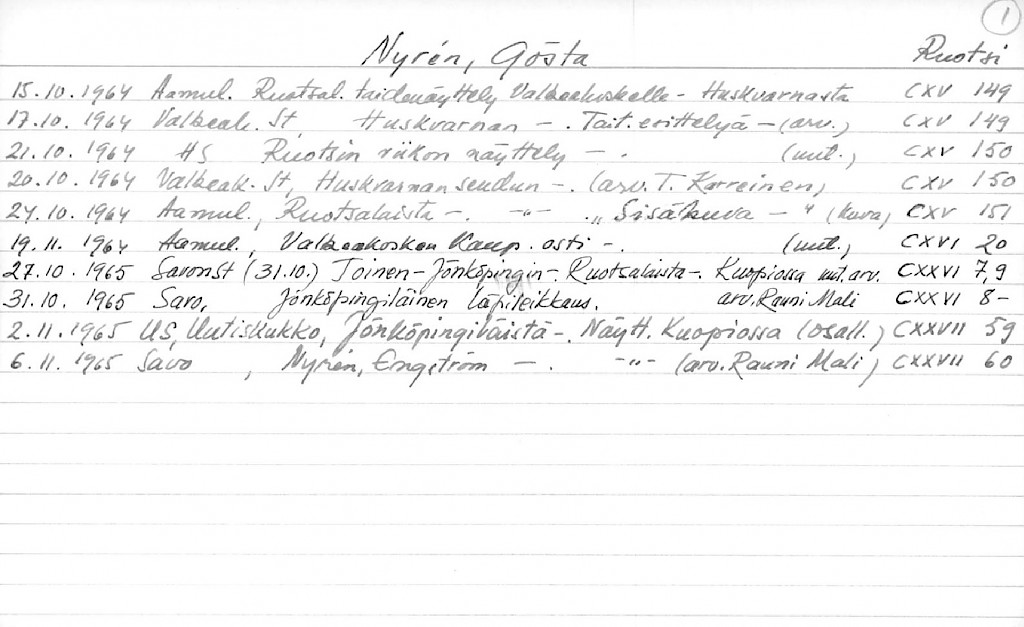 1
Nyrén, Gösta Ruotsi
15.10.1964 Aamul. Ruotsal. taidenäyttely Valkeakoskelle - Huskvarnasta CXV 149
17.10.1964 Valkeak. St, Huskvarnan - . Tait. erittelyä - (arv.) CXV 149
21.10.1964 HS Ruotsin viikon näyttely - . (mit.) CXV 150
20.10.1964 Valkeak. St, Huskvarnan seudun -. (arv. T. Karreinen) CXV 150
24.10.1964 Aamul., Ruotsalaista -. -"- . "Sisäkuva - " (kuva) CXV 151
19.11.1964 Aamul., Valkeakosken Kaup. osti -. (mit.) CXVI 20
27.10.1965 SavonSt (31.10.) Toinen - Jönköpingin -. Ruotsalaista -. Kuopiossa mit. arv. CXXVI 7,9
31.10.1965 Savo, Jönköpingiläinen läpileikkaus. arv. Rauni Mali CXXVI 8-
2.11.1965 US, Uutiskukko, Jönköpingiläistä -. Näytt. Kuopiossa (osall.) CXXVII 59
6.11.1965 Savo , Nyrén, Engström - . -"- (arv. Rauni Mali) CXXVII 60